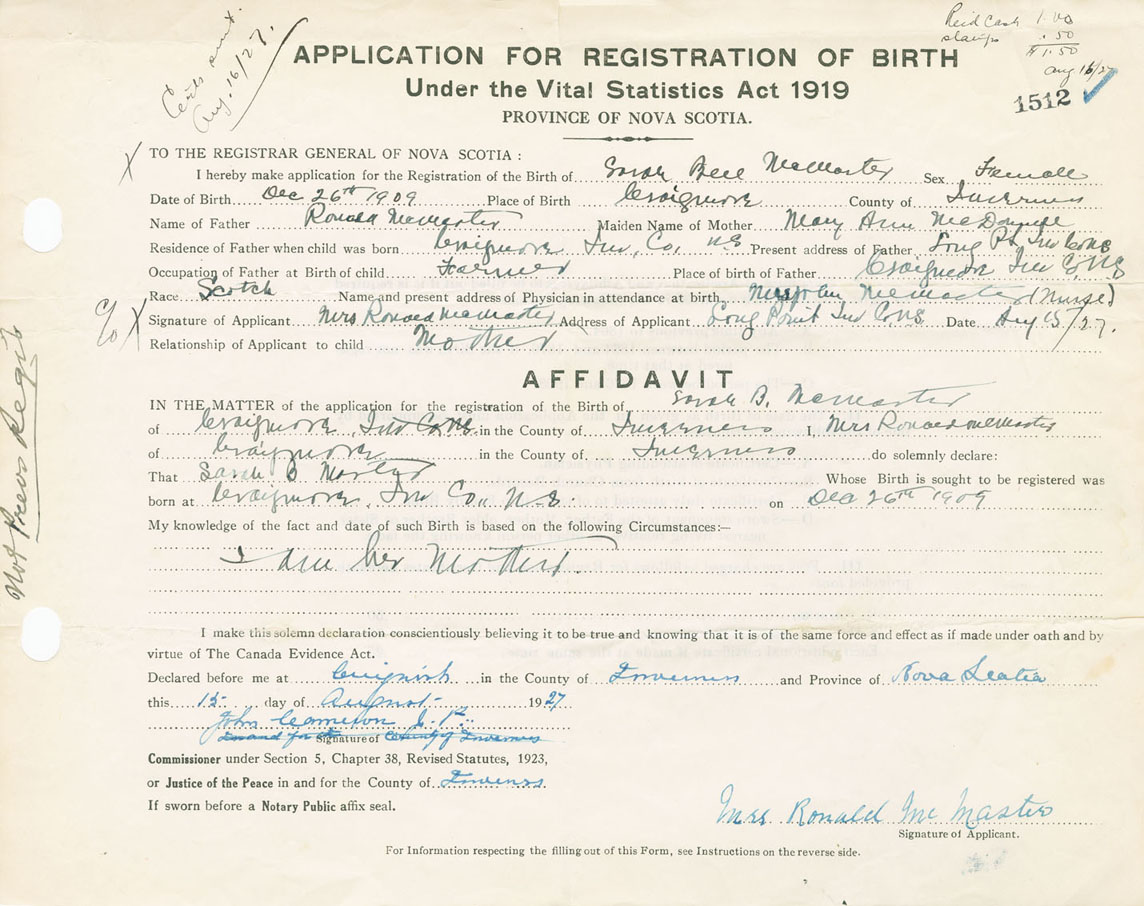 Certs sent.
Aug. 16/27.
Paid Cash 1.00
stamps .50
$1.50
Aug 16/27
1512
APPLICATION FOR REGISTRATION OF BIRTH
Under the Vital Statistics Act 1919
PROVINCE OF NOVA SCOTIA.
X TO THE REGISTRAR GENERAL OF NOVA SCOTIA :
I hereby make application for the Registration of the Birth of Sarah Bell McMaster Sex Female
Date of Birth Dec 26th 1909 Place of Birth Craigmore County of Inverness
Name of Father Ronald McMaster Maiden Name of Mother Mary Ann McDonnell
Residence of Father when child was born Craigmore Inv, Co, N.S Present address of Father Long Pt Inv Co NS
Occupation of Father at Birth of child Farmer Place of birth of Father Craigmore Inv Co NS
Race Scotch Name and present address of Physician in attendance at birth Mrs John McMaster (Nurse)
c/o X Signature of Applicant Mrs Ronald McMaster Address of Applicant Long Point Inv Co NS Date Aug 15/27.
Relationship of Applicant to child Mother
AFFIDAVIT
IN THE MATTER of the application for the registration of the Birth of Sarah B. McMaster
of Craigmore, Inv Co NS in the County of Inverness I, Mrs Ronald McMaster
of Craigmore in the County of Inverness do solemnly declare:
That Sarah B Whose Birth is sought to be registered was
born at Craigmore, Inv Co., N.S. on Dec 26th 1909
My knowledge of the fact and date of such Birth is based on the following Circumstances:—
I am her Mother.
I make this solemn declaration conscientiously believing it to be true and knowing that it is of the same force and effect as if made under oath and by
virtue of The Canada Evidence Act.
Declared before me at Creignish in the County of Inverness and Province of Nova Scotia
this 15 day of August 1927
John Cameron J. P.
In and for the Signature of County of Inverness
Commissioner under Section 5, Chapter 38, Revised Statutes, 1923,
or Justice of the Peace in and for the County of Inverness
If sworn before a Notary Public affix seal.
Mrs Ronald Mc Master
Signature of Applicant.
For Information respecting the filling out of this Form, see Instructions on the reverse side.
Not Previous Regist